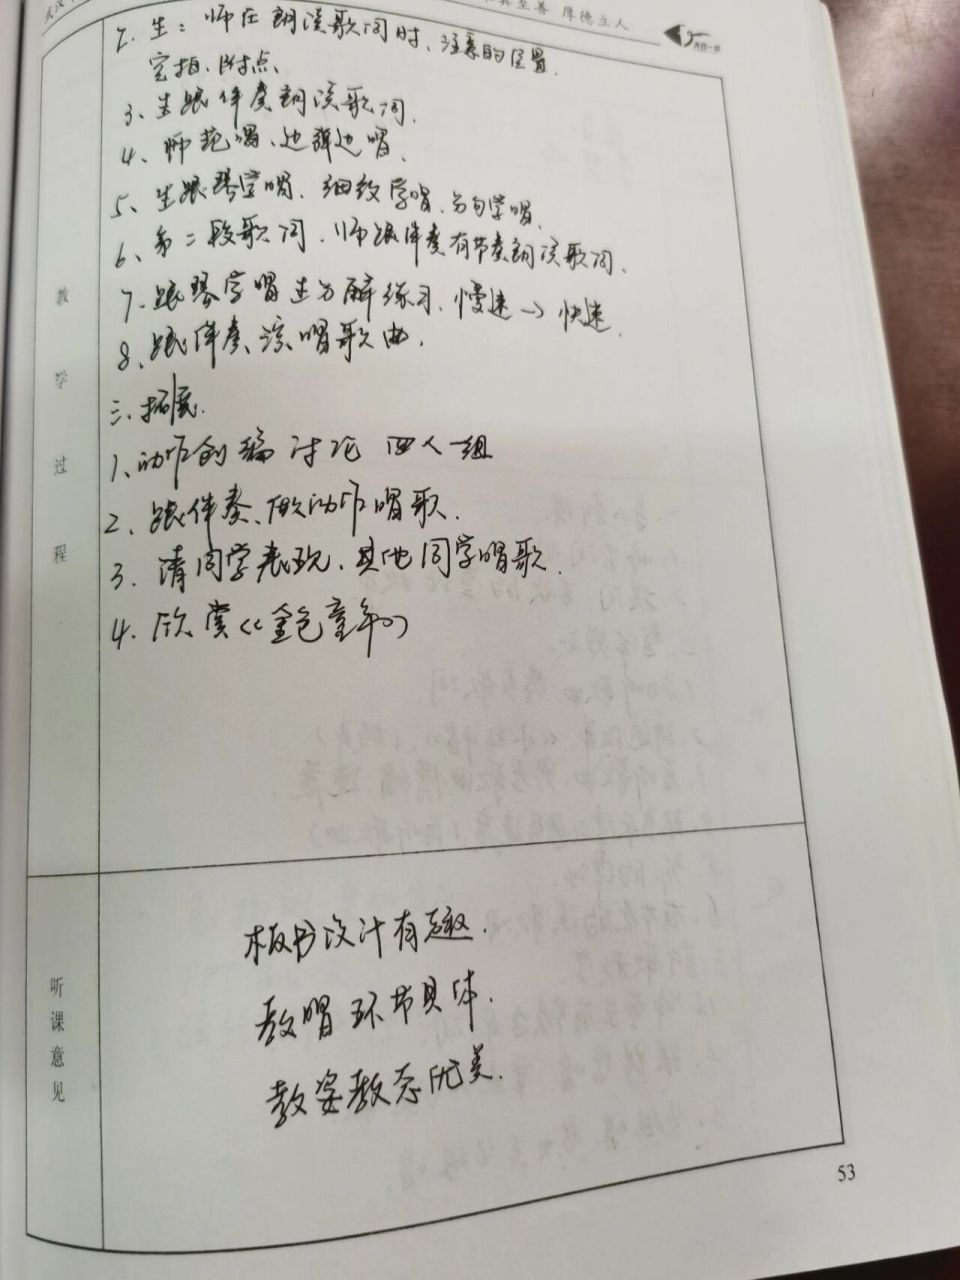 至善 厚德立人
2. 生：师在朗读歌词时，注意的位置.
空拍、附点、
3、生跟伴奏朗读歌词.
4、师范唱、边弹边唱、
5、生跟琴学唱、细致学唱、分句学唱、
6、第二段歌词，师跟伴奏有节奏朗读歌词、
7、跟琴学唱 练习、慢速→快速.
8、跟伴奏 演唱歌曲.
三、拓展.
1、动作创编 讨论 四人一组
2、跟伴奏、做动作唱歌.
3. 请同学表现，其他同学唱歌.
4. 欣赏《金色童年》
教学过程
板书设计有趣.
教唱环节具体.
教姿教态优美.
听课意见
53